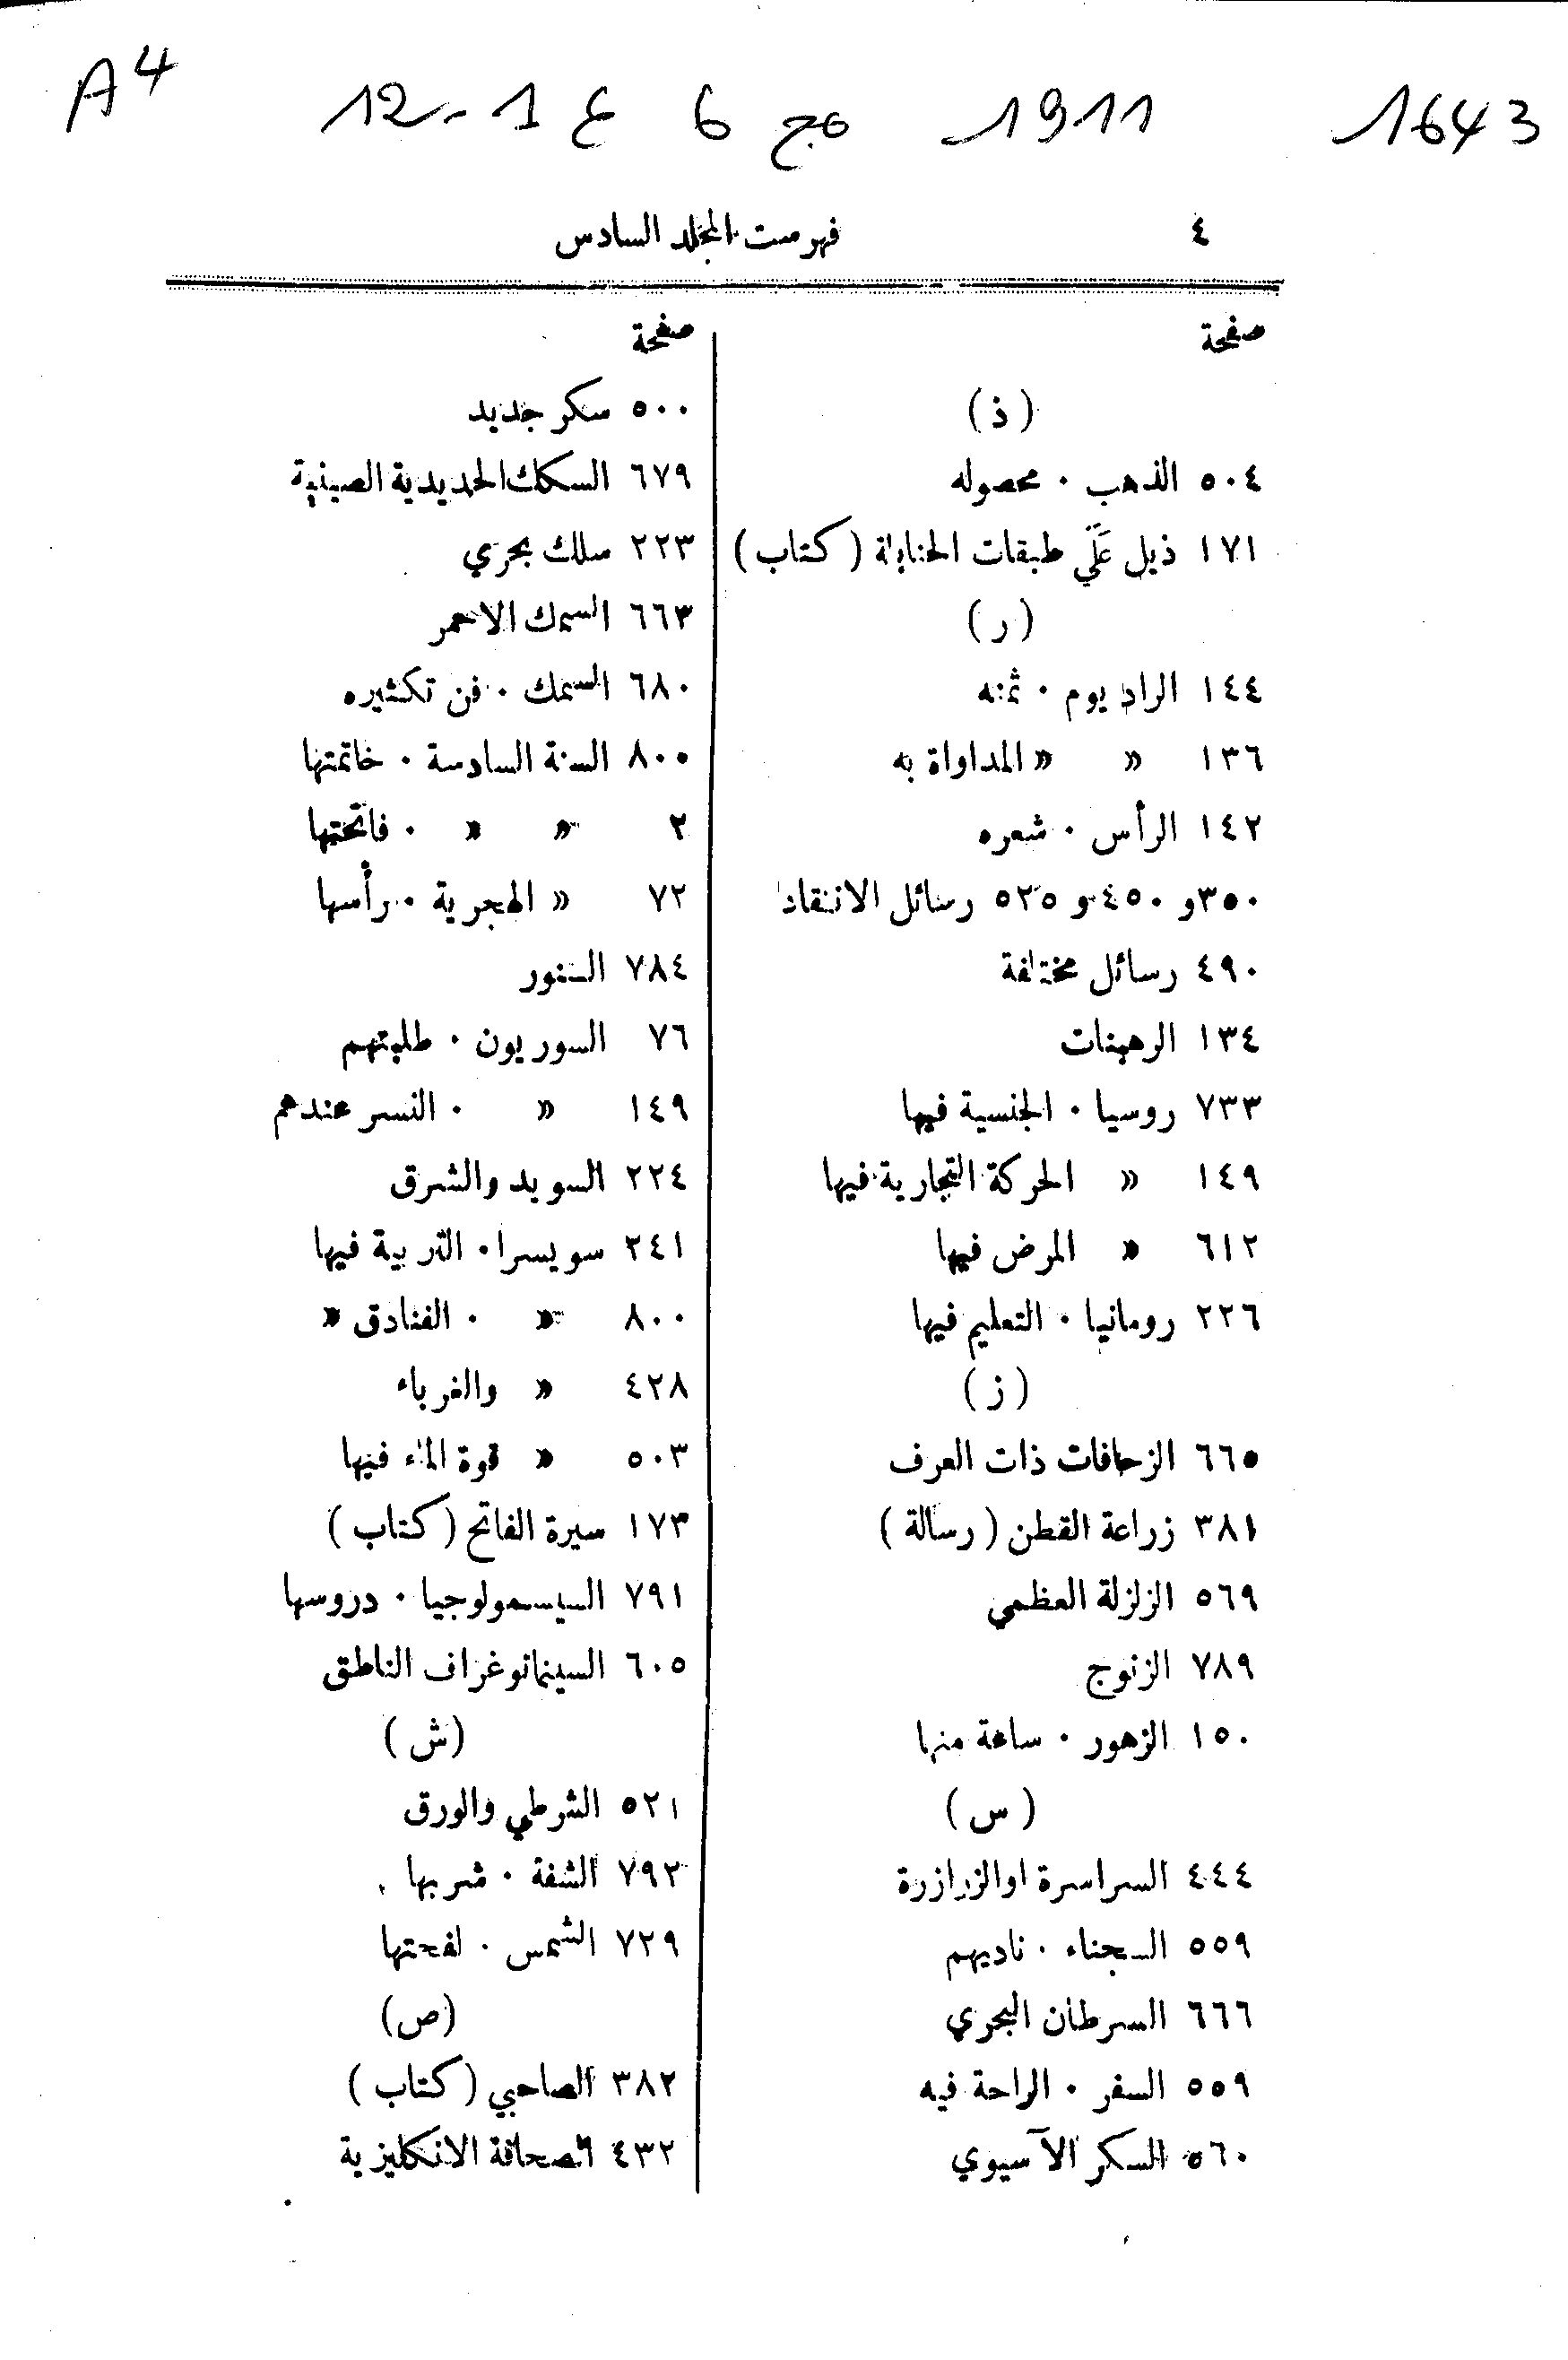 A4
1643 1911 مج 6 ع 1-12
٤ فهرست المجلد السادس
صفحة
(ذ)
٥٠٤ الذهب · محصوله
١٧١ ذيل عَلَى طبقات الحنابلة (كتاب)
(ر)
١٤٤ الراديوم · ثمنه
١٣٦ « « المداواة به
١٤٢ الرأس · شعره
٣٥٠ و ٤٥٠ و ٥٢٥ رسائل الانتقاد
٤٩٠ رسائل مختلفة
١٣٤ الرهبنات
٧٣٣ روسيا · الجنسية فيها
١٤٩ « الحركة التجارية فيها
٦١٢ « المرض فيها
٢٢٦ رومانيا · التعليم فيها
(ز)
٦٦٥ الزحافات ذات العرف
٣٨١ زراعة القطن (رسالة)
٥٦٩ الزلزلة العظمي
٧٨٩ الزنوج
١٥٠ الزهور · ساعة منها
(س)
٤٤٤ السراسرة اوالزرازرة
٥٥٩ السجناء · ناديهم
٦٦٦ السرطان البحري
٥٥٩ السفر · الراحة فيه
٥٦٠ السكر الآسيوي
صفحة
٥٠٠ سكر جديد
٦٧٩ السكك الحديدية الصينية
٢٢٣ سلك بحري
٦٦٣ السمك الاحمر
٦٨٠ السمك · فن تكثيره
٨٠٠ السنة السادسة · خاتمتها
٢ « « · فاتحتها
٧٢ « الهجرية · رأسها
٧٨٤ السنور
٧٦ السوريون · طلبتهم
١٤٩ « · النسر عندهم
٢٢٤ السويد والشرق
٢٤١ سويسرا · التربية فيها
٨٠٠ « · الفنادق «
٤٢٨ « والغرباء
٥٠٣ « قوة الماء فيها
١٧٣ سيرة الفاتح (كتاب)
٧٩١ السيسمولوجيا · دروسها
٦٠٥ السينماتوغراف الناطق
(ش)
٥٢١ الشرطي والورق
٧٩٢ الشفة · شربها
٧٢٩ الشمس · لفحتها
(ص)
٣٨٢ الصاحبي (كتاب)
٤٣٢ الصحافة الانكليزية